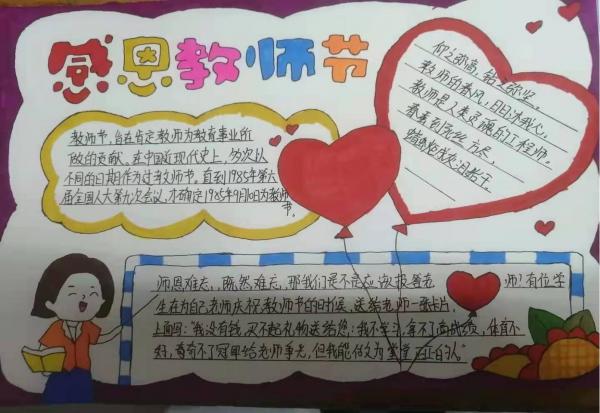 感恩教师节
教师节，旨在肯定教师为教育事业所
做的贡献。在中国近现代史上，多次以
不同的日期作为过教师节。直到1985年第六
届全国人大第九次会议，才确定1985年9月10日为教师
节。
仰之弥高，钻之弥坚。
教师的春风，日日沐我心，
教师是人类灵魂的工程师。
春蚕到死丝方尽，
蜡炬成灰泪始干。
师恩难忘，既然难忘，那我们是不是应该报答老师！有位学
生在为自己老师庆祝教师节的时候，送给老师一张卡片，
上面写："我没有钱，买不起礼物送给您；我不学习，拿不了
不了冠军给老师争光，但我能